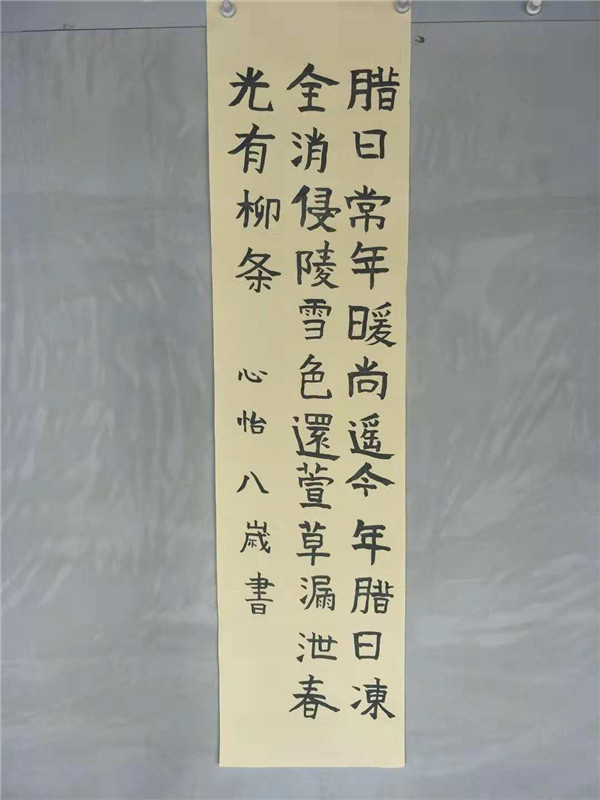 腊日常年暖尚遥今年腊日凍
全消侵陵雪色還萱草漏泄春
光有柳条
心怡八歲書